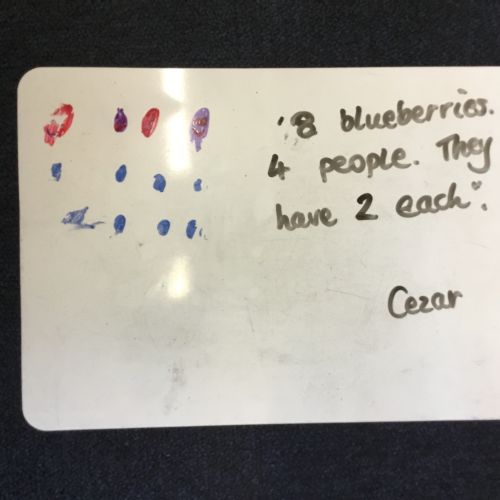 '8 blueberries.
4 people. They
have 2 each".
Cezar